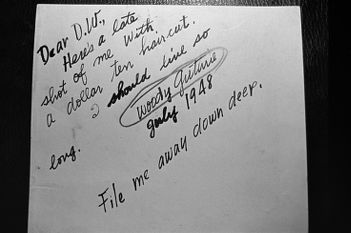 Dear D.W.,
Here's a late
shot of me with
a dollar ten haircut.
I should live so
long.
Woody Guthrie
July 1948
File me away down deep.